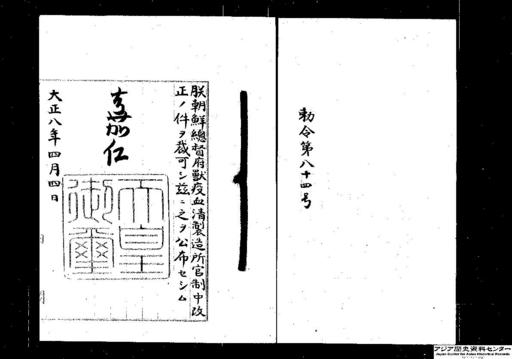 勅令第八十四号
朕朝鮮總督府獸疫血清製造所官制中改
正ノ件ヲ裁可シ玆ニ之ヲ公布セシム
嘉仁
天皇
御璽
大正八年四月四日
アジア歴史資料センター
Japan Center for Asian Historical Records